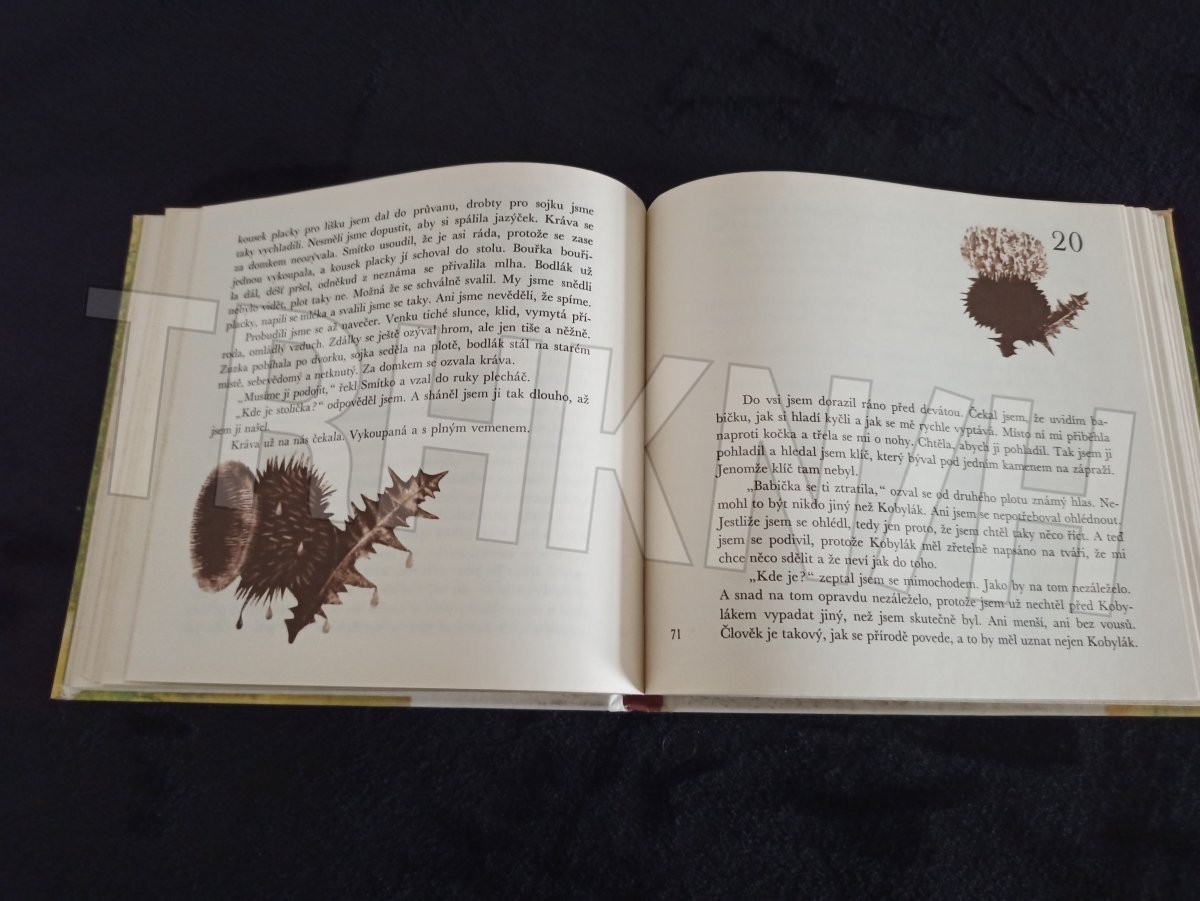 kousek placky pro lišku jsem dal do průvanu, drobty pro sojku jsme
taky vychladili. Nesměli jsme dopustit, aby si spálila jazýček. Kráva se
za domkem neozývala. Smítko usoudil, že je asi ráda, protože se zase
jednou vykoupala, a kousek placky jí schoval do stolu. Bouřka bouři-
la dál, déšť pršel, odněkud z neznáma se přivalila mlha. Bodlák už
nebylo vidět, plot taky ne. Možná že se schválně svalil. My jsme snědli
placky, napili se mléka a svalili jsme se taky. Ani jsme nevěděli, že spíme.
Probudili jsme se až navečer. Venku tiché slunce, klid, vymytá pří-
roda, omládlý vzduch. Zdálky se ještě ozýval hrom, ale jen tiše a něžně.
Zuzka pobíhala po dvorku, sojka seděla na plotě, bodlák stál na starém
místě, sebevědomý a netknutý. Za domkem se ozvala kráva.
„Musíme ji podojit,“ řekl Smítko a vzal do ruky plecháč.
„Kde je stolička?“ odpověděl jsem. A sháněl jsem ji tak dlouho, až
jsem ji našel.
Kráva už na nás čekala. Vykoupaná a s plným vemenem.
20
Do vsi jsem dorazil ráno před devátou. Čekal jsem, že uvidím ba-
bičku, jak si hladí kyčli a jak se mě rychle vyptává. Místo ní mi přiběhla
naproti kočka a třela se mi o nohy. Chtěla, abych ji pohladil. Tak jsem ji
pohladil a hledal jsem klíč, který býval pod jedním kamenem na zápraží.
Jenomže klíč tam nebyl.
„Babička se ti ztratila,“ ozval se od druhého plotu známý hlas. Ne-
mohl to být nikdo jiný než Kobylák. Ani jsem se nepotřeboval ohlédnout.
Jestliže jsem se ohlédl, tedy jen proto, že jsem chtěl taky něco říct. A teď
jsem se podivil, protože Kobylák měl zřetelně napsáno na tváři, že mi
chce něco sdělit a že neví jak do toho.
„Kde je?“ zeptal jsem se mimochodem. Jako by na tom nezáleželo.
A snad na tom opravdu nezáleželo, protože jsem už nechtěl před Koby-
lákem vypadat jiný, než jsem skutečně byl. Ani menší, ani bez vousů.
71 Člověk je takový, jak se přírodě povede, a to by měl uznat nejen Kobylák.
TRHKNIH